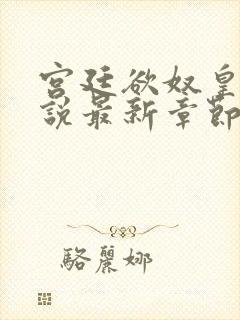 宫廷欲奴皇
說最新章節
駱麗娜